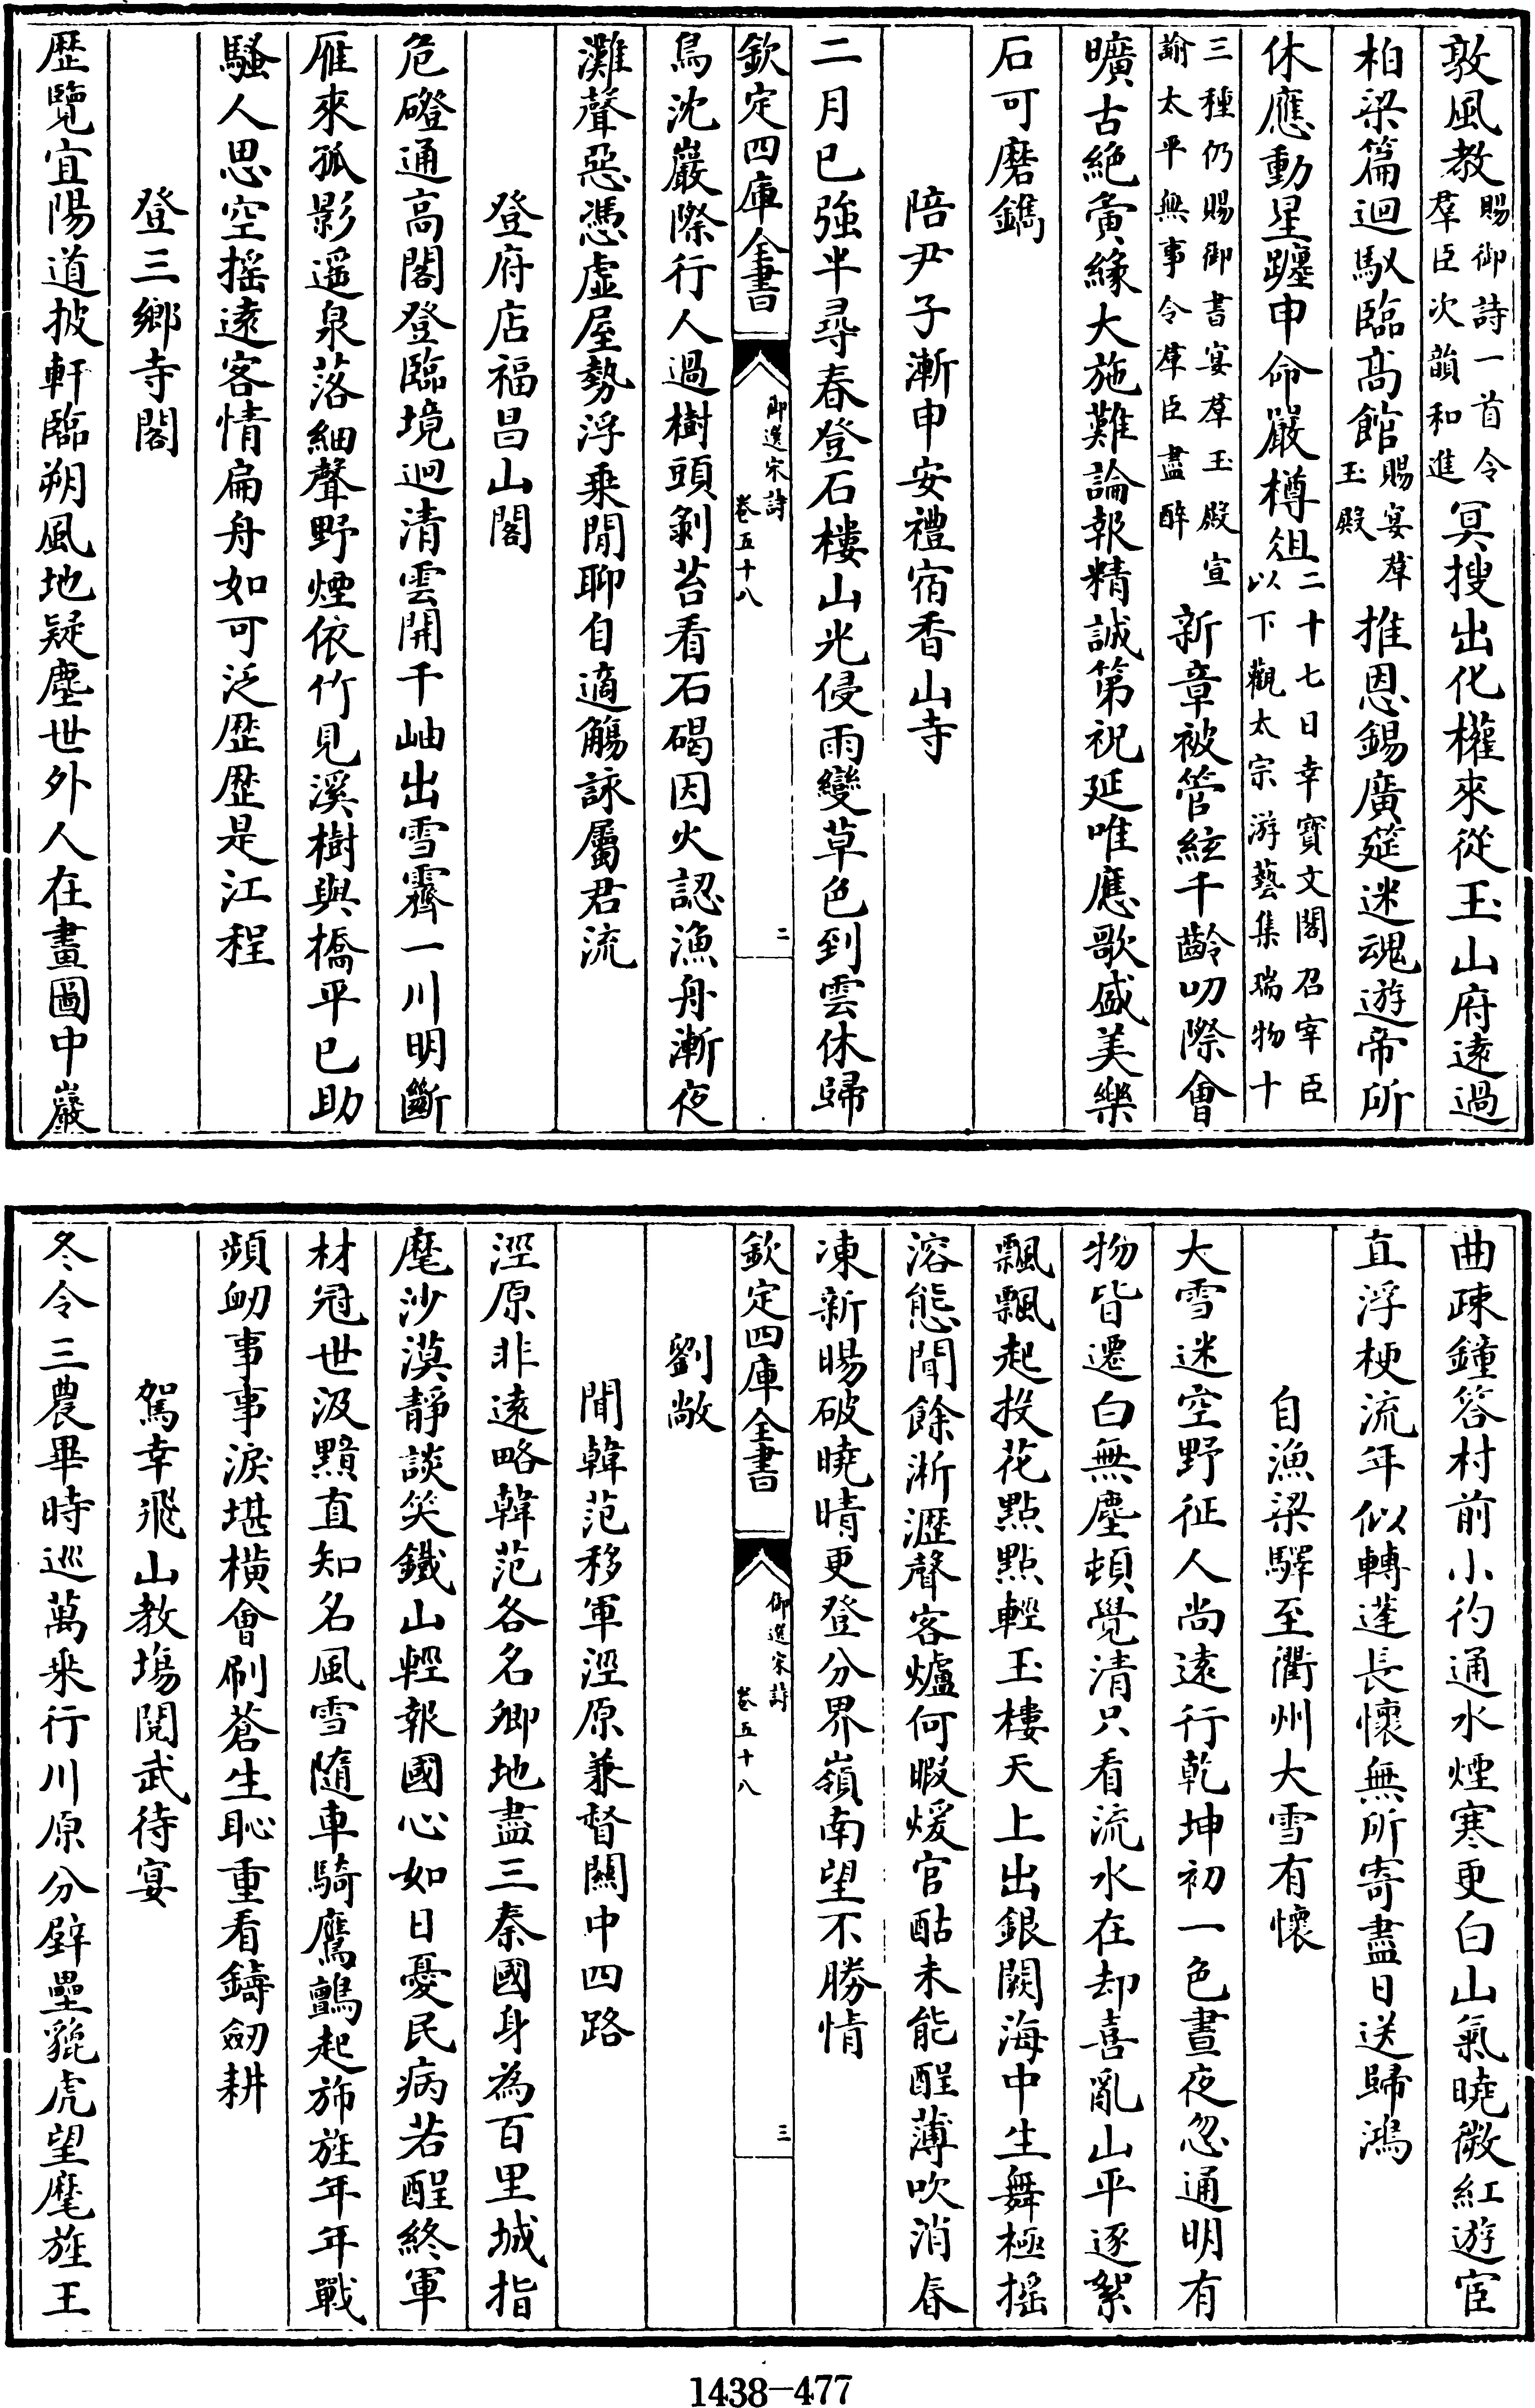 敦風教賜御詩一首令羣臣次韻和進冥搜出化權來從玉山府遠過
柏梁篇迴馭臨高館賜宴羣玉殿推恩錫廣筵迷魂遊帝所
休應動星躔申命嚴樽俎二十七日幸寳文閣召宰臣以下觀太宗游藝集瑞物十
三種仍賜御書宴羣玉殿宣諭太平無事令羣臣盡醉新章被管絃千齡叨際會
曠古絶夤緣大施難論報精誠第祝延唯應歌盛美樂
石可磨鐫
陪尹子漸申安禮宿香山寺
二月已強半尋春登石樓山光侵雨變草色到雲休歸
欽定四庫全書
御選宋詩
卷五十八
二
鳥沈巖際行人過樹頭剝苔看石碣因火認漁舟漸夜
灘聲惡憑虚屋勢浮乗閒聊自適觴詠屬君流
登府店福昌山閣
危磴通高閣登臨境迥清雲開千岫出雪霽一川明斷
雁來孤影遥泉落細聲野煙依竹見溪樹與橋平已助
騷人思空摇逺客情扁舟如可泛歴歴是江程
登三鄉寺閣
歴覽宜陽道披軒臨朔風地疑塵世外人在畫圖中巖
曲疎鐘答村前小彴通水煙寒更白山氣曉微紅遊宦
直浮梗流年似轉蓬長懷無所寄盡日送歸鴻
自漁梁驛至衢州大雪有懷
大雪迷空野征人尚遠行乾坤初一色晝夜忽通明有
物皆遷白無塵頓覺清只看流水在却喜亂山平逐絮
飄飄起投花點點輕玉樓天上出銀闕海中生舞極摇
溶態聞餘淅瀝聲客爐何暇煖官酤未能酲薄吹消舂
凍新暘破曉晴更登分界嶺南望不勝情
欽定四庫全書
御選宋詩
卷五十八
三
劉敞
聞韓范移軍涇原兼督關中四路
涇原非遠略韓范各名卿地盡三秦國身為百里城指
麾沙漠靜談笑鐵山輕報國心如日憂民病若酲終軍
材冠世汲黯直知名風雪隨車騎鷹鸇起斾旌年年戰
頻衂事事淚堪橫會刷蒼生恥重看鑄劒耕
駕幸飛山教場閱武待宴
冬令三農畢時巡萬乗行川原分壁壘貔虎望麾旌王
1438—477